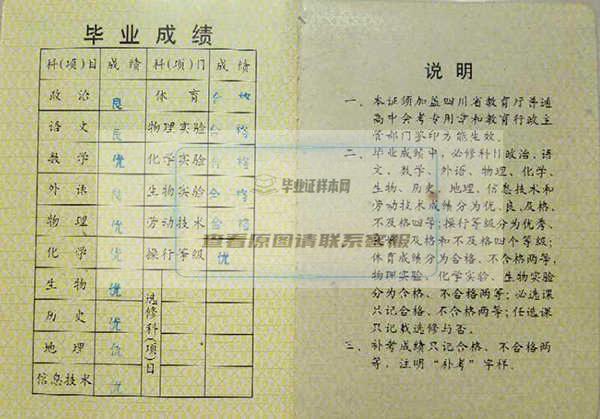 毕业成绩
科(项)目 成绩 科(项)门 成绩
政治 良 体育 合格
语文 良 物理实验 合格
数学 优 化学实验 合格
外语 良 生物实验 合格
物理 优 劳动技术 合格
化学 优 操行等级 优
生物 优
历史 优
地理 优
信息技术 优
选修科(项)目
说明
一、本证须加盖四川省教育厅普通
高中会考专用章和教育行政主
管部门签印方能生效。
二、毕业成绩中,必修科目政治、语
文、数学、外语、物理、化学、
生物、历史、地理、信息技术和
劳动技术成绩分为优、良、及格、
不及格四等;操行等级分为优秀、
及格和不及格四个等级;
体育成绩分为合格、不合格两等,
物理实验、化学实验、生物实验
分为合格、不合格两等;必选课
只记合格、不合格两等;任选课
只记载选修与否。
三、补考成绩只记合格、不合格两
等,注明“补考”字样。
毕业证样本网
查看原图请联系客服